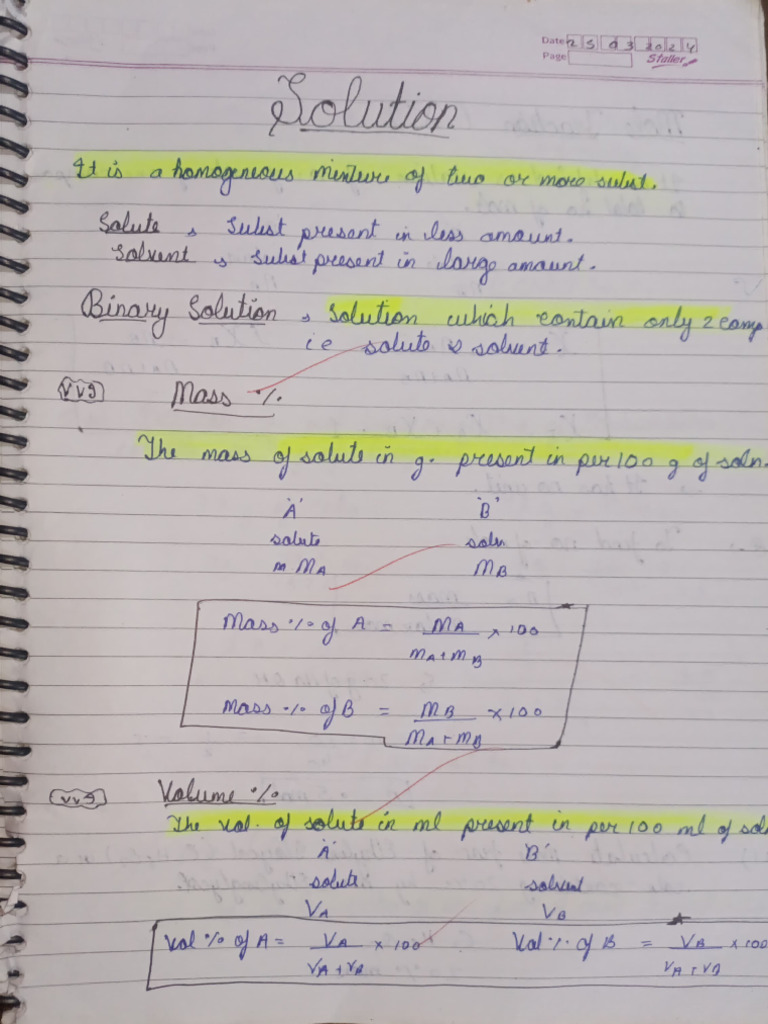 Date 25 03 2024
Page Staller
Solution
It is a homogeneous mixture of two or more subst.
Solute, Subst present in less amount.
Solvent, Subst present in large amount.
Binary Solution, solution which contain only 2 comp
i.e solute & solvent.
VVI Mass %
The mass of solute in g. present in per 100 g of soln.
'A' 'B'
solute soln
MA MB
Mass % of A = MA / MA + MB × 100
Mass % of B = MB / MA + MB × 100
VVI Volume %
The vol. of solute in ml present in per 100 ml of sol
'A' 'B'
solute solvent
VA VB
Vol % of A = VA / VA + VB × 100 Vol % of B = VB / VA + VB × 100